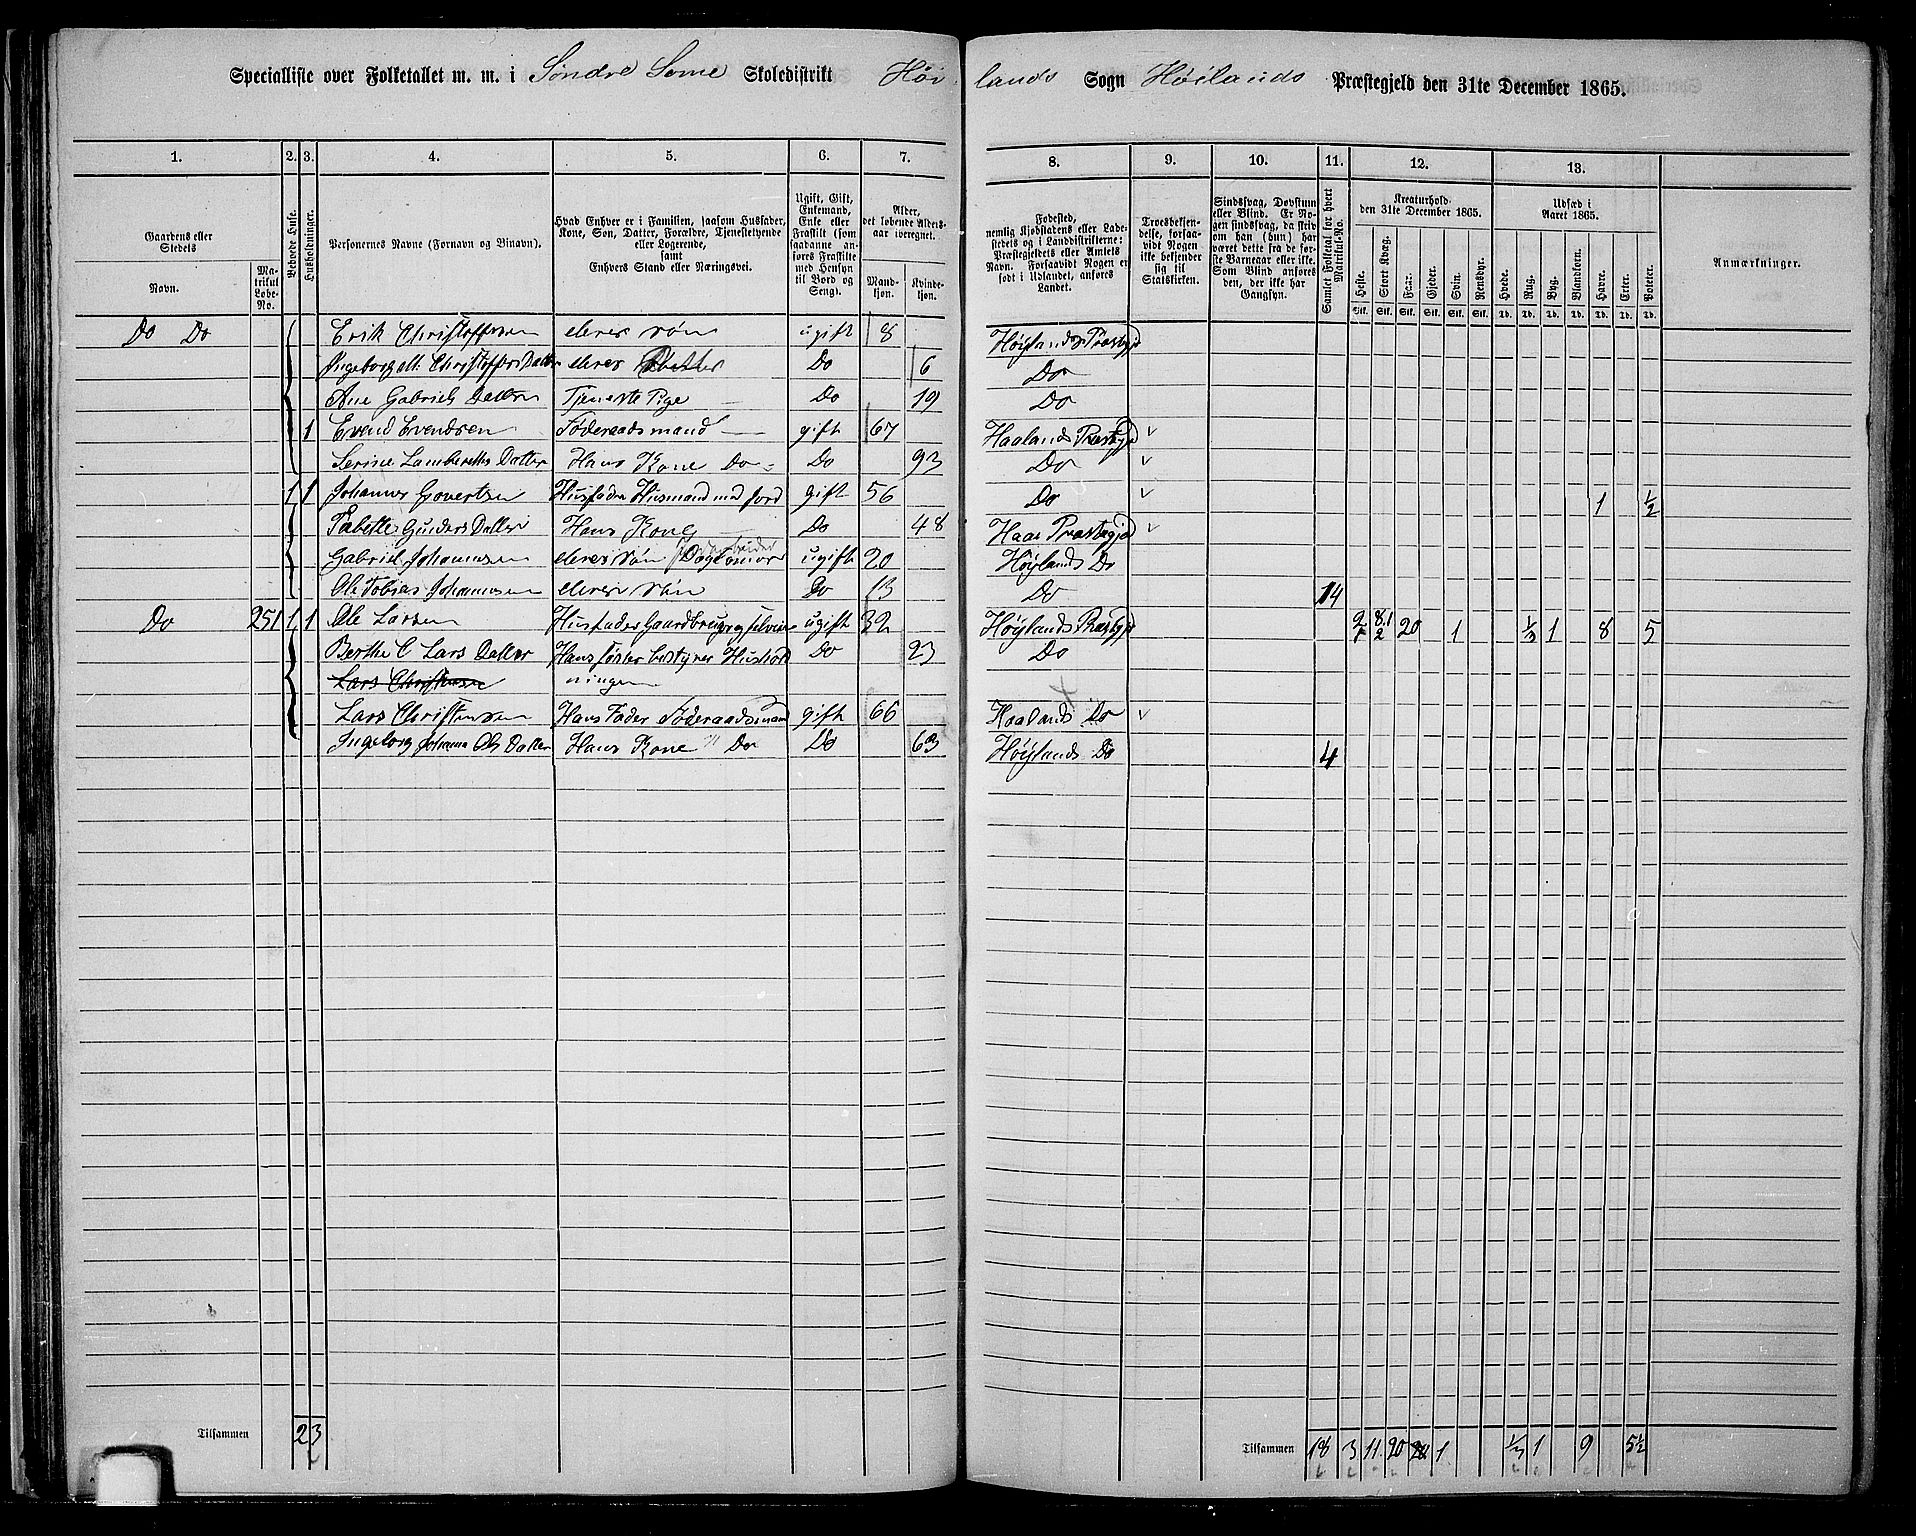 Specialliste over Folketallet m. m. i Søndre Some Skoledistrikt Høi-lands Sogn Høilands Præstegjeld den 31te December 1865.
1. 2. 3. 4. 5. 6. 7. 8. 9. 10. 11. 12. 13.
Gaardens eller Stedets
Navn.
Matrikul Løbe-No.
Beboede Huse.
Husholdninger.
Personernes Navne (Fornavn og Binavn).
Hvad Enhver er i Familien, saasom Husfader, Kone, Søn, Datter, Forældre, Tjenestetyende eller Logerende,
samt
Enhvers Stand eller Næringsvei.
Ugift, Gift, Enkemand, Enke eller Fraskilt (som saadanne anføres Fraskilte med Hensyn til Bord og Seng).
Alder, det løbende Alders-aar iberegnet.
Mandkjøn. Kvindekjøn.
Fødested, nemlig Kjøbstadens eller Ladestedets og i Landdistrikterne: Præstegjeldets eller Amtets Navn. Forsaavidt Nogen er født i Udlandet, anføres Landet.
Troesbekjendelse, forsaavidt Nogen ikke bekjender sig til Statskirken.
Sindssvag, Døvstum eller Blind. Er Nogen sindssvag, da skriv om han (hun) har været dette fra de første Barneaar eller ikke. Som Blind anføres den, der ikke har Gangsyn.
Samlet Folketal for hvert Matrikul-No.
Kreaturhold den 31te December 1865.
Heste. Stort Kvæg. Faar. Gjeder. Svin. Rensdyr.
Stk. Stk. Stk. Stk. Stk. Stk.
Udsæd i Aaret 1865.
Hvede. Rug. Byg. Blandkorn. Havre. Erter. Poteter.
Td. Td. Td. Td. Td. Td. Td.
Anmærkninger.
Do Do Erik Christoffersen deres Søn ugift 8 Høylands Præstgjd
Ingeborg M. Christoffers Datter deres Datter Do 6 Do
Ane Gabriels Datter Tjeneste Pige Do 19 Do
1 Evend Evendsen Føderaadsmand gift 67 Haalands Præstgjd
Serine Lamberths Datter Hans Kone Do Do 93 Do
1 1 Johannes Govertsen Husfader Husmand med Jord gift 56 Do 1 ½
Tabette Gunders Datter Hans Kone Do 48 Haae Præstegjd
Gabriel Johannesen deres Søn ugift 20 Høylands Do
Ole Tobias Johannesen deres Søn Do 13 Do 14
Do 251 1 1 Ole Larsen Husfader Gaardbruger og selveier ugift 32 Høylands Præstgjd 20 1 1 8 5
Berthe C Lars Datter Hans søster bestyrer Hushold Do 23 Do
Lars Christensen ningen
Lars Christensen Hans Fader Føderaadsmand gift 66 Haalands Do
Ingeborg Johanna Ols Datter Hans Kone Do Do 63 Høylands Do 4
Tilsammen 2 3
Tilsammen 18 3 11 20 1 1 9 5½